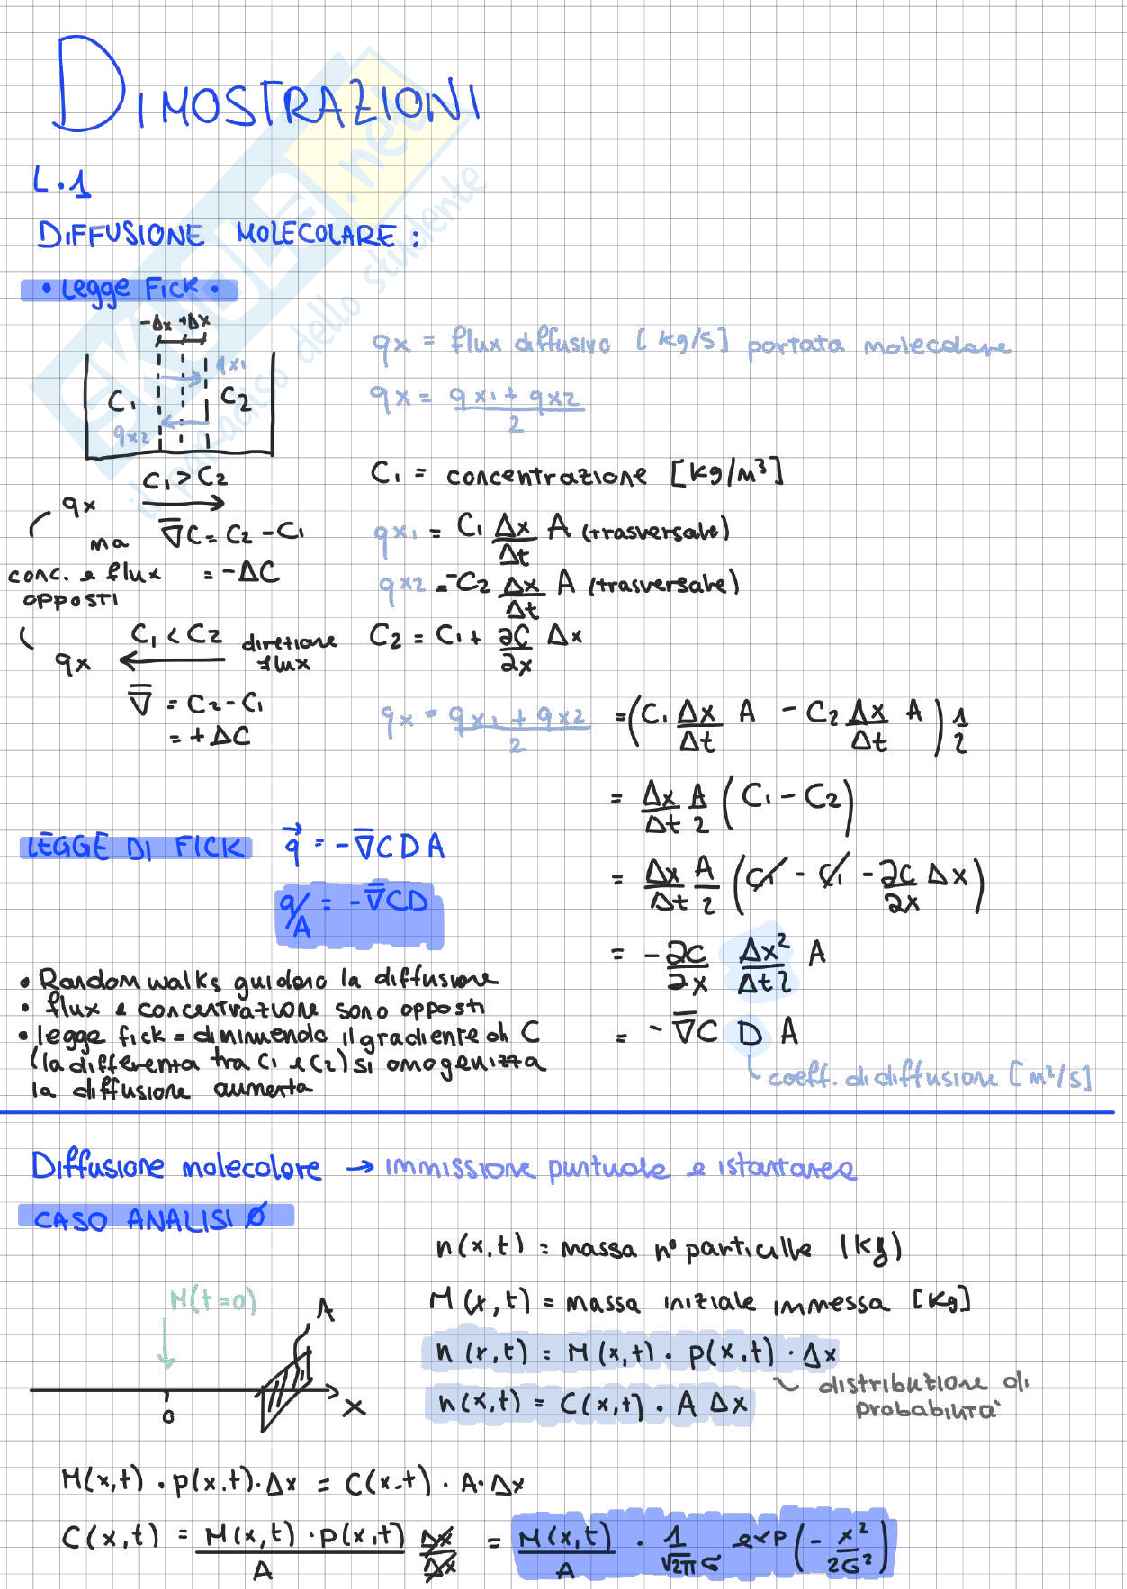 DIMOSTRAZIONI
L.1
DIFFUSIONE MOLECOLARE :
• Legge Fick •
-Δx +Δx
qx1
C₁ C₂
qx2
C₁ > C₂
qx
ma ∇̄C = C₂ - C₁
conc. e flux = -ΔC
opposti
C₁ < C₂ direzione
qx flux
∇̄ = C₂ - C₁
= + ΔC
qx = flux diffusivo [kg/s] portata molecolare
qx = (qx1 + qx2)/2
C₁ = concentrazione [kg/m³]
qx1 = C₁ Δx/Δt A (trasversale)
qx2 = -C₂ Δx/Δt A (trasversale)
C₂ = C₁ + ∂C/∂x Δx
qx = (qx1 + qx2)/2 = (C₁ Δx/Δt A - C₂ Δx/Δt A) 1/2
= Δx/Δt A/2 (C₁ - C₂)
= Δx/Δt A/2 (C₁ - C₁ - ∂C/∂x Δx)
= - ∂C/∂x Δx²/Δt2 A
= - ∇̄C D A
coeff. di diffusione [m²/s]
LEGGE DI FICK q⃗ = -∇̄CDA
q/A = -∇̄CD
• Random walks guidano la diffusione
• flux e concentrazione sono opposti
• legge fick = diminuendo il gradiente di C
(la differenza tra C₁ e C₂) si omogenizza
la diffusione aumenta
Diffusione molecolare → immissione puntuale e istantanea
CASO ANALISI 0
M(t=0)
A
0 x
n(x,t) = massa n° particelle (kg)
M(x,t) = massa iniziale immessa [kg]
n(x,t) = M(x,t) · p(x,t) · Δx
distribuzione di
probabilità
n(x,t) = C(x,t) · A Δx
M(x,t) · p(x,t) · Δx = C(x,t) · A · Δx
C(x,t) = M(x,t) · p(x,t)/A Δx/Δx = M(x,t)/A · 1/(√2π σ) exp(- x²/2σ²)